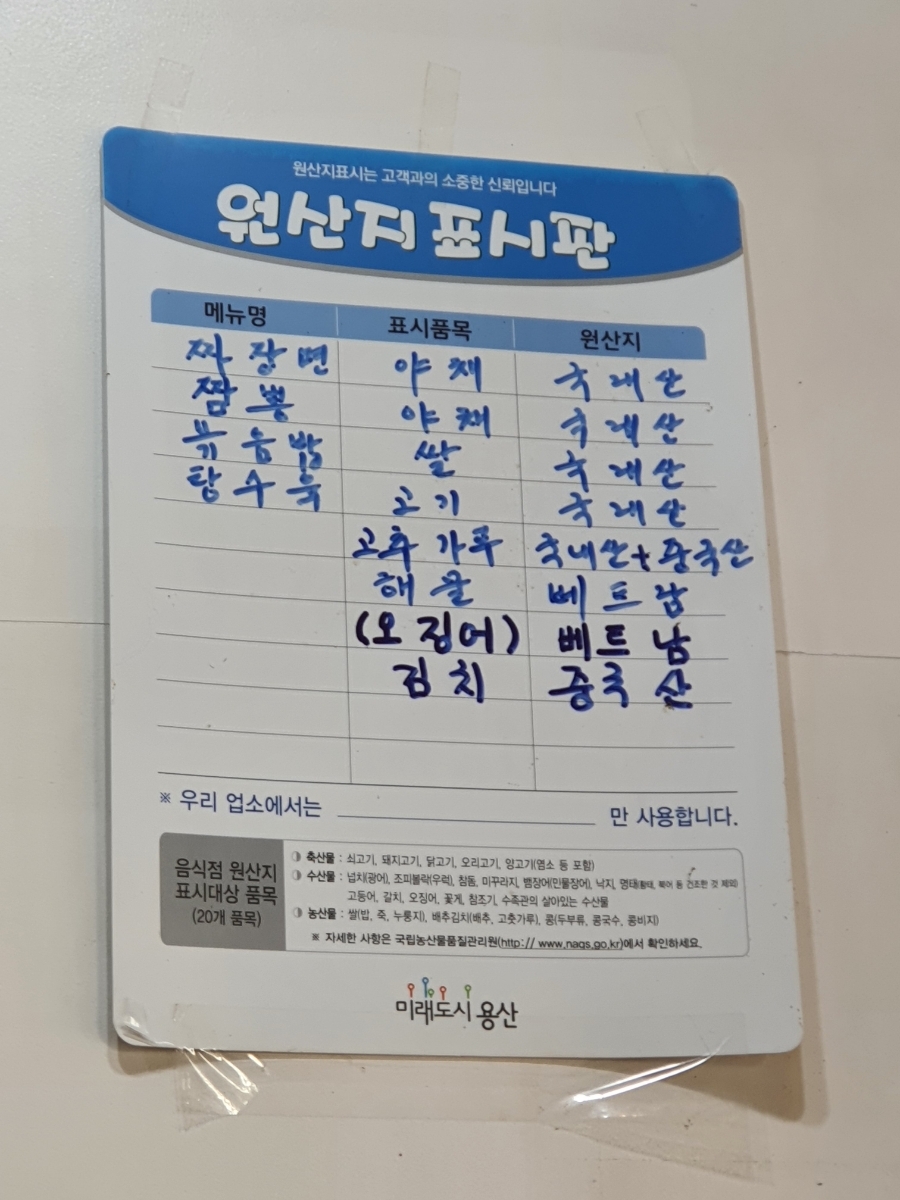 원산지표시는 고객과의 소중한 신뢰입니다
원산지 표시판
메뉴명 표시품목 원산지
짜장면 야채 국내산
짬뽕 야채 국내산
볶음밥 쌀 국내산
탕수육 고기 국내산
고추가루 국내산+중국산
해물 베트남
(오징어) 베트남
김치 중국산
※ 우리 업소에서는 만 사용합니다.
음식점 원산지
표시대상 품목
(20개 품목)
축산물 : 쇠고기, 돼지고기, 닭고기, 오리고기, 양고기(염소 등 포함)
수산물 : 넙치(광어), 조피볼락(우럭), 참돔, 미꾸라지, 뱀장어(민물장어), 낙지, 명태(황태, 북어 등 건조한 것 제외)
고등어, 갈치, 오징어, 꽃게, 참조기, 수족관의 살아있는 수산물
농산물 : 쌀(밥, 죽, 누룽지), 배추김치(배추, 고춧가루), 콩(두부류, 콩국수, 콩비지)
※ 자세한 사항은 국립농산물품질관리원(http: // www.naqs.go.kr)에서 확인하세요.
미래도시 용산